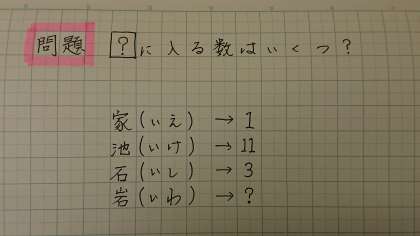 問題 ?に入る数はいくつ?
家(いえ)→1
池(いけ)→11
石(いし)→3
岩(いわ)→?